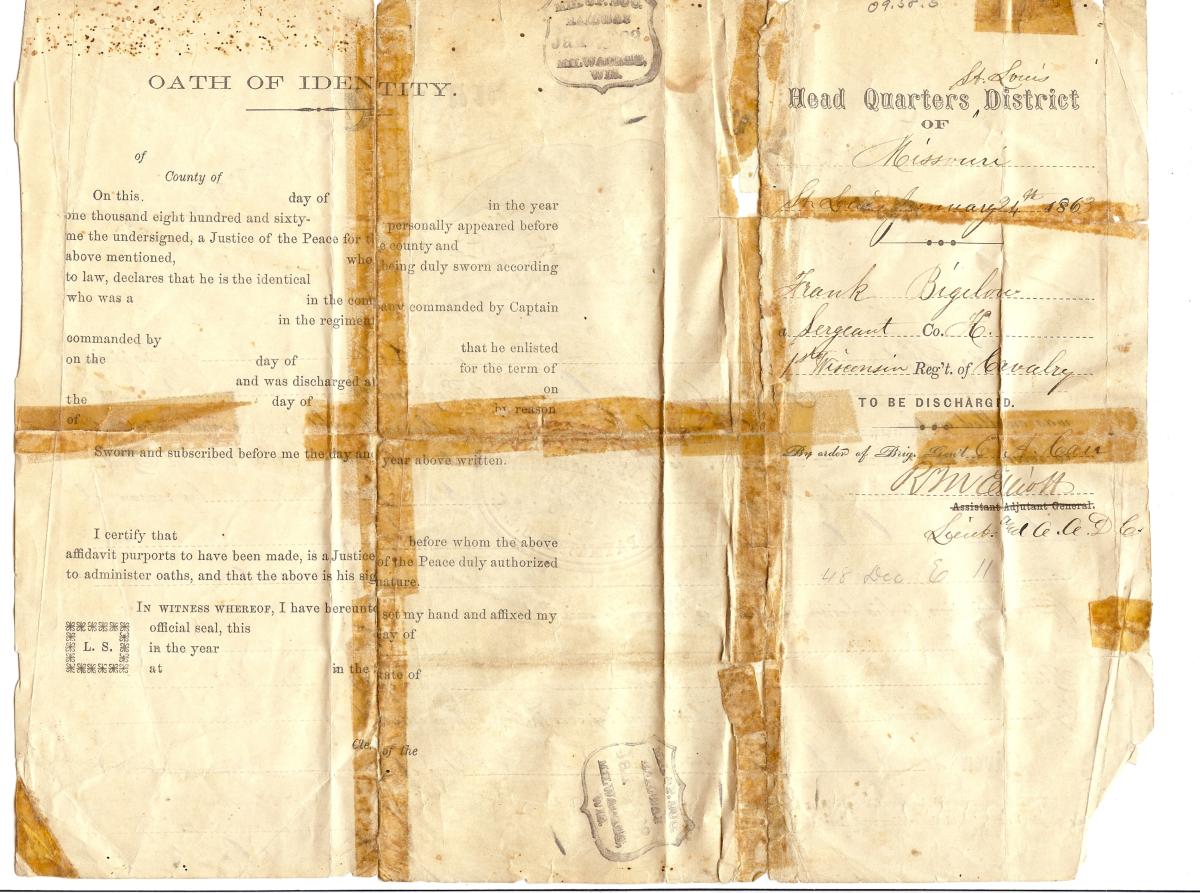 OATH OF IDENTITY.
of
County of
On this. day of in the year
one thousand eight hundred and sixty- personally appeared before
me the undersigned, a Justice of the Peace for the county and
above mentioned, who being duly sworn according
to law, declares that he is the identical
who was a in the company commanded by Captain
in the regiment
commanded by that he enlisted
on the day of for the term of
and was discharged at on
the day of by reason
of
Sworn and subscribed before me the day and year above written.
I certify that before whom the above
affidavit purports to have been made, is a Justice of the Peace duly authorized
to administer oaths, and that the above is his signature.
IN WITNESS WHEREOF, I have hereunto set my hand and affixed my
official seal, this day of
L. S.
in the year
at in the state of
of the
MILWAUKEE,
WIS.
MILWAUKEE,
WIS.
St. Louis
Head Quarters District
OF
Missouri
St. Louis January 24th 1863
Frank Bigelow
a Sergeant Co. K.
1st Wisconsin Reg't. of Cavalry
TO BE DISCHARGED.
By order of Brig. Gen'l E. A. Carr
Assistant Adjutant General.
Lieut. and A. A. D. C.
48 Dec E 11